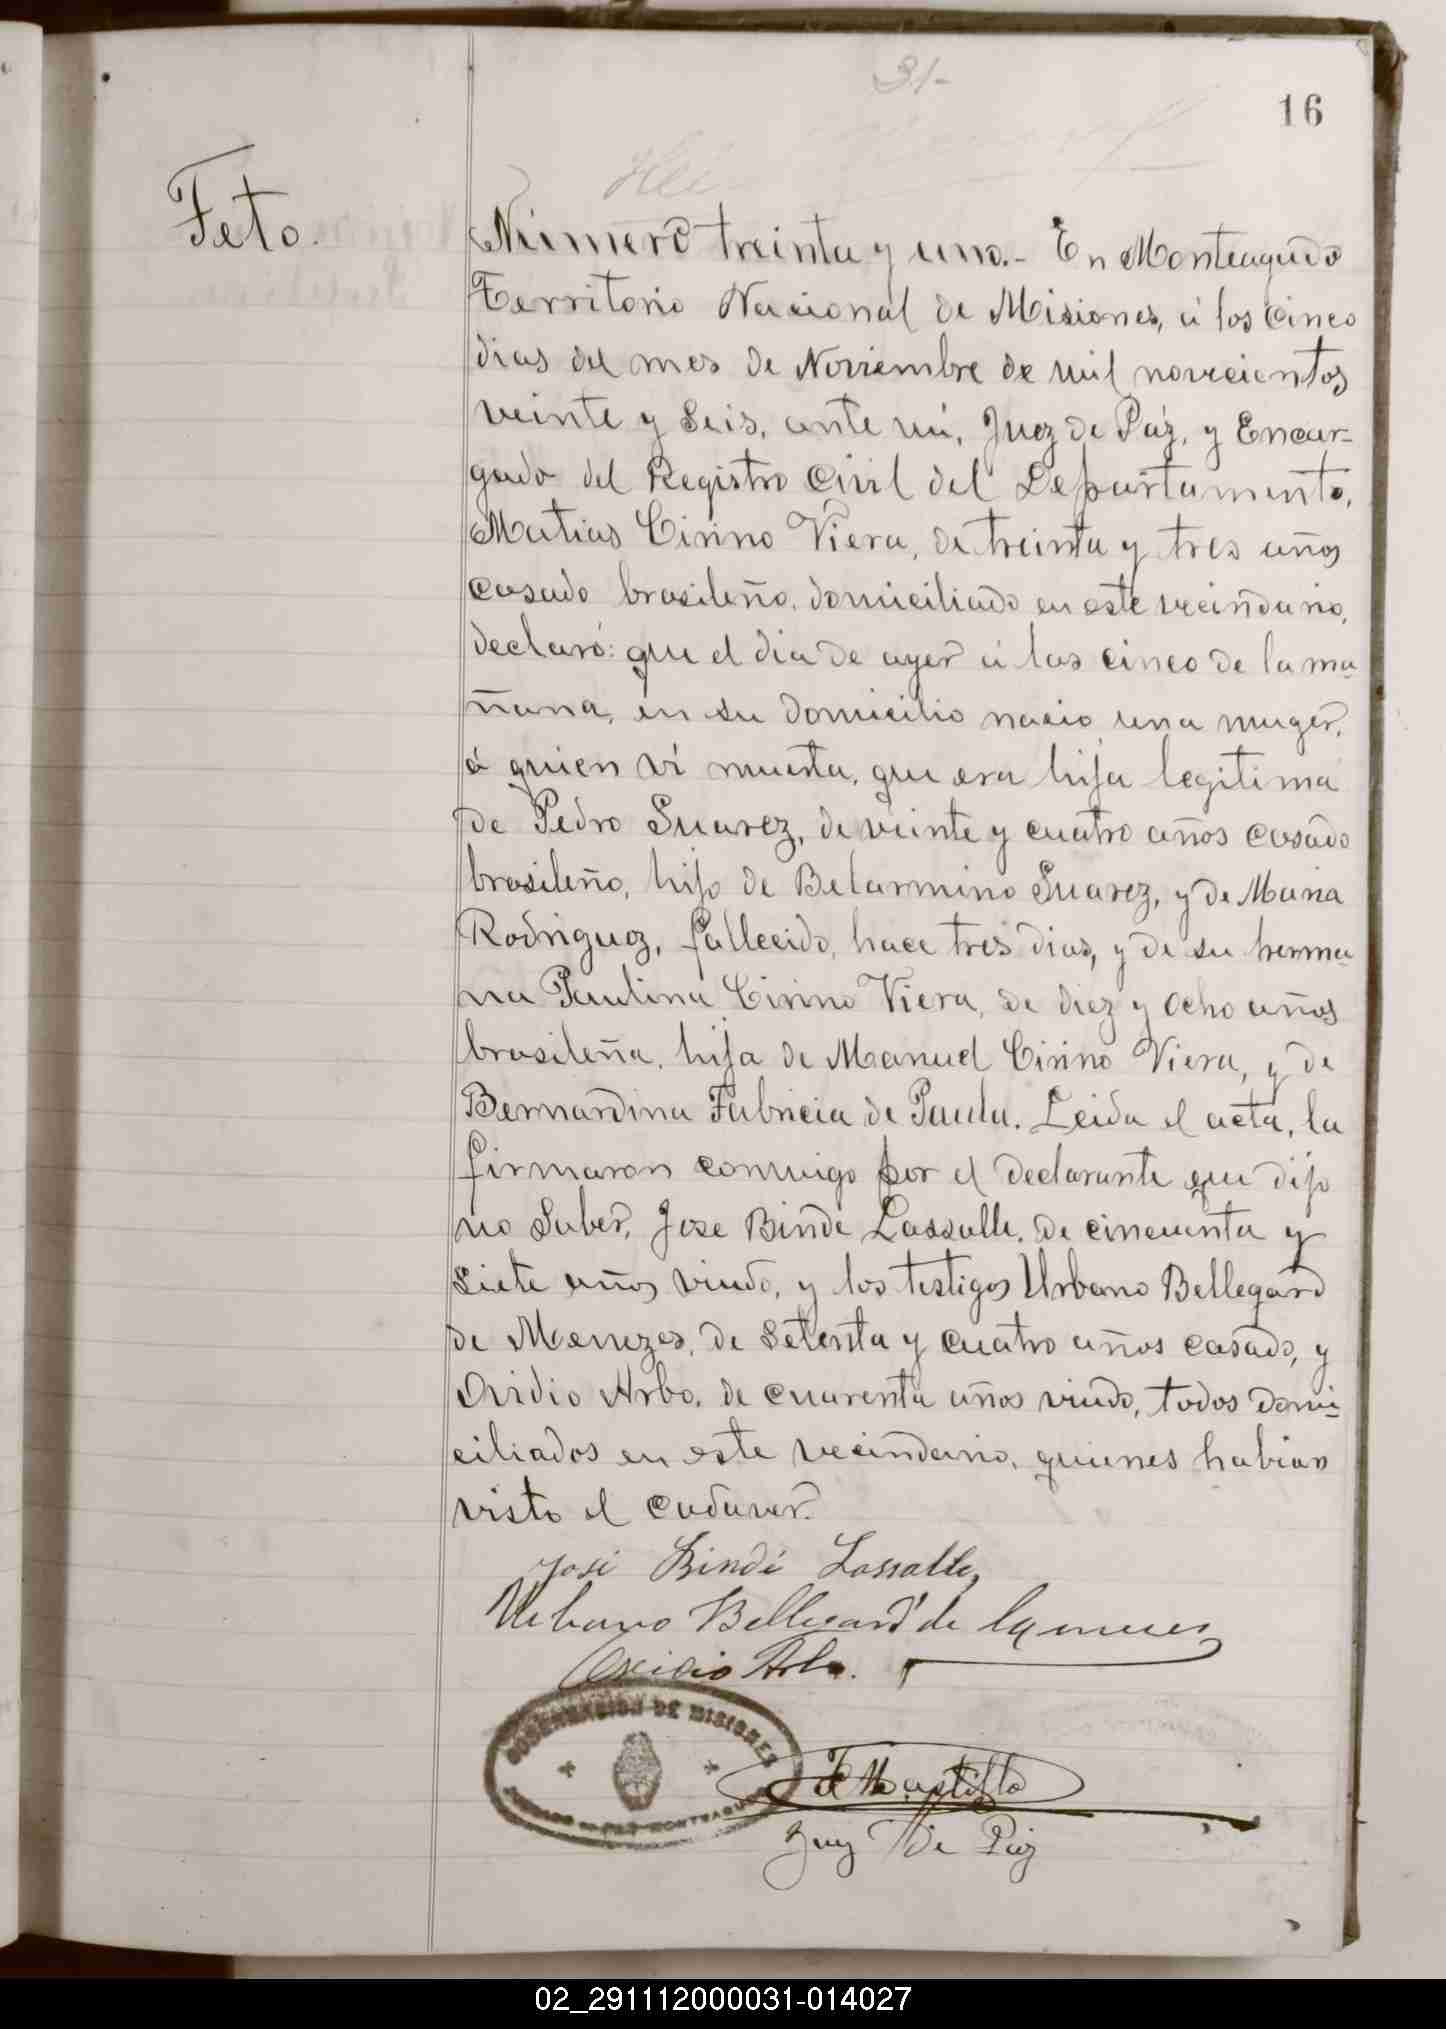 31-
16
Feto.
Número treinta y uno.- En Monteagudo
Territorio Nacional de Misiones, á los cinco
dias del mes de Noviembre de mil novecientos
veinte y seis, ante mí, Juez de Páz, y Encar-
gado del Registro Civil del Departamento,
Matias Cirino Viera, de treinta y tres años
casado brasileño, domiciliado en este vecindario,
declaró: que el dia de ayer á las cinco de la ma-
ñana, en su domicilio nacio una muger,
á quien ví muerta, que era hija legitima
de Pedro Suarez, de veinte y cuatro años casado
brasileño, hijo de Belarmino Suarez, y de Maria
Rodriguez, fallecido, hace tres dias, y de su herma-
na Paulina Cirino Viera, de diez y ocho años
brasileña, hija de Manuel Cirino Viera, y de
Bernardina Fabricia de Paula. Leida el acta, la
firmaron conmigo por el declarante que dijo
no saber, Jose Bindé Lassalle, de cincuenta y
siete años viudo, y los testigos Urbano Bellegard
de Menezes, de setenta y cuatro años casado, y
Ovidio Arbo, de cuarenta años viudo, todos domi-
ciliados en este vecindario, quienes habian
visto el cadaver.
José Bindé Lassalle
Urbano Bellegard de
Ovidio Arbo.
GOBERNACION DE MISIONES
JUZGADO DE PAZ MONTEAGUDO
Juez de Paz
02_291112000031-014027